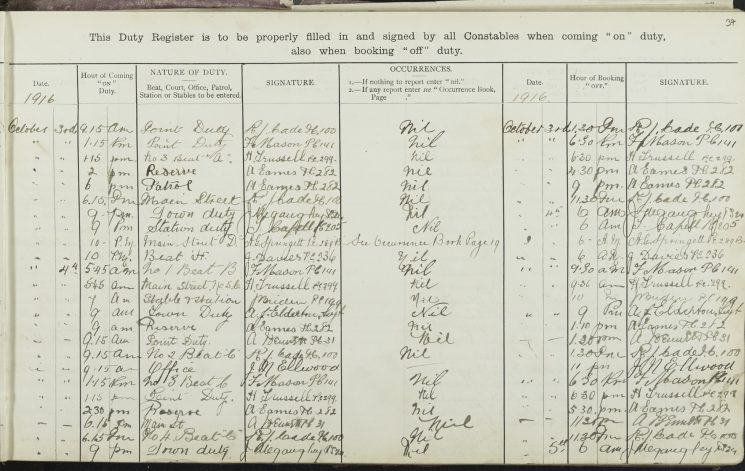 34
This Duty Register is to be properly filled in and signed by all Constables when coming "on" duty,
also when booking "off" duty.
Date. Hour of Coming "ON" Duty. NATURE OF DUTY. Beat, Court, Office, Patrol, Station or Stables to be entered. SIGNATURE. OCCURRENCES. 1.—If nothing to report enter "nil." 2.—If any report enter see "Occurrence Book, Page ." Date. Hour of Booking "OFF." SIGNATURE.
1916 1916
October 3rd 9.15 am Point Duty R J Cade PC 100 Nil October 3rd 1.30 Pm R J Cade PC 100
" " 1.15 Pm Point Duty F Mason PC 141 Nil " " 6.30 Pm F Mason PC 141
" " 1.15 pm No 3 Beat "A" H Trussell P.C. 299 Nil " " 6.30 pm H Trussell P.C. 299
" " 2 pm Reserve A Eames PC 282 Nil " " 4.30 pm A Eames PC 282
" " 6 pm Patrol A Eames PC 282 Nil " " 9 pm A Eames PC 282
" " 6.15 Pm Main Street R J Cade PC 100 Nil " " 11.30 Pm R J Cade PC 100
" " 9 Pm Town duty Megaughey Nil " 4th 6 am Megaughey
" " 9 Pm Station duty Capell PC 205 Nil " " 6 am Capell PC 205
" " 10 P.M. Main Street D Springett See Occurrence Book Page 19 " " 6 A.M. Springett
" " 10 P.M. Beat F. J Davies PC 336 Nil " " 6 A.M. J Davies PC 336
" 4th 5.45 am No 1 Beat B F Mason PC 141 Nil " " 9.30 am F Mason PC 141
" " 5.45 am Main Street H Trussell P.C. 299 Nil " " H Trussell P.C. 299
" " 7 am Stable & station Nil
" " 9 am Town Duty Nil " " 9 Pm
" " 9 am Reserve A Eames PC 282 Nil " " 1.10 pm A Eames PC 282
" " 9.15 am Point Duty. PC 31 Nil " " PC 31
" " 9.15 am No 2 Beat C R J Cade PC 100 Nil " " 1.30 Pm R J Cade PC 100
" " 9.15 am Office Ellwood " " 11 pm Ellwood
" " 1.45 Pm No 3 Beat C F Mason PC 141 Nil " " 6.30 Pm F Mason PC 141
" " 1.15 pm Point Duty. H Trussell P.C. 299 Nil " " 6.30 pm H Trussell P.C. 299
" " 2.30 pm Reserve A Eames PC 282 Nil " " 5.30 pm A Eames PC 282
" " 6.15 pm Main St PC 31 Nil " " PC 31
" " 6.15 Pm No 4 Beat C R J Cade PC 100 Nil " " 11.30 Pm R J Cade PC 100
" " 9 pm Town duty Megaughey Nil " 5th 6 am Megaughey